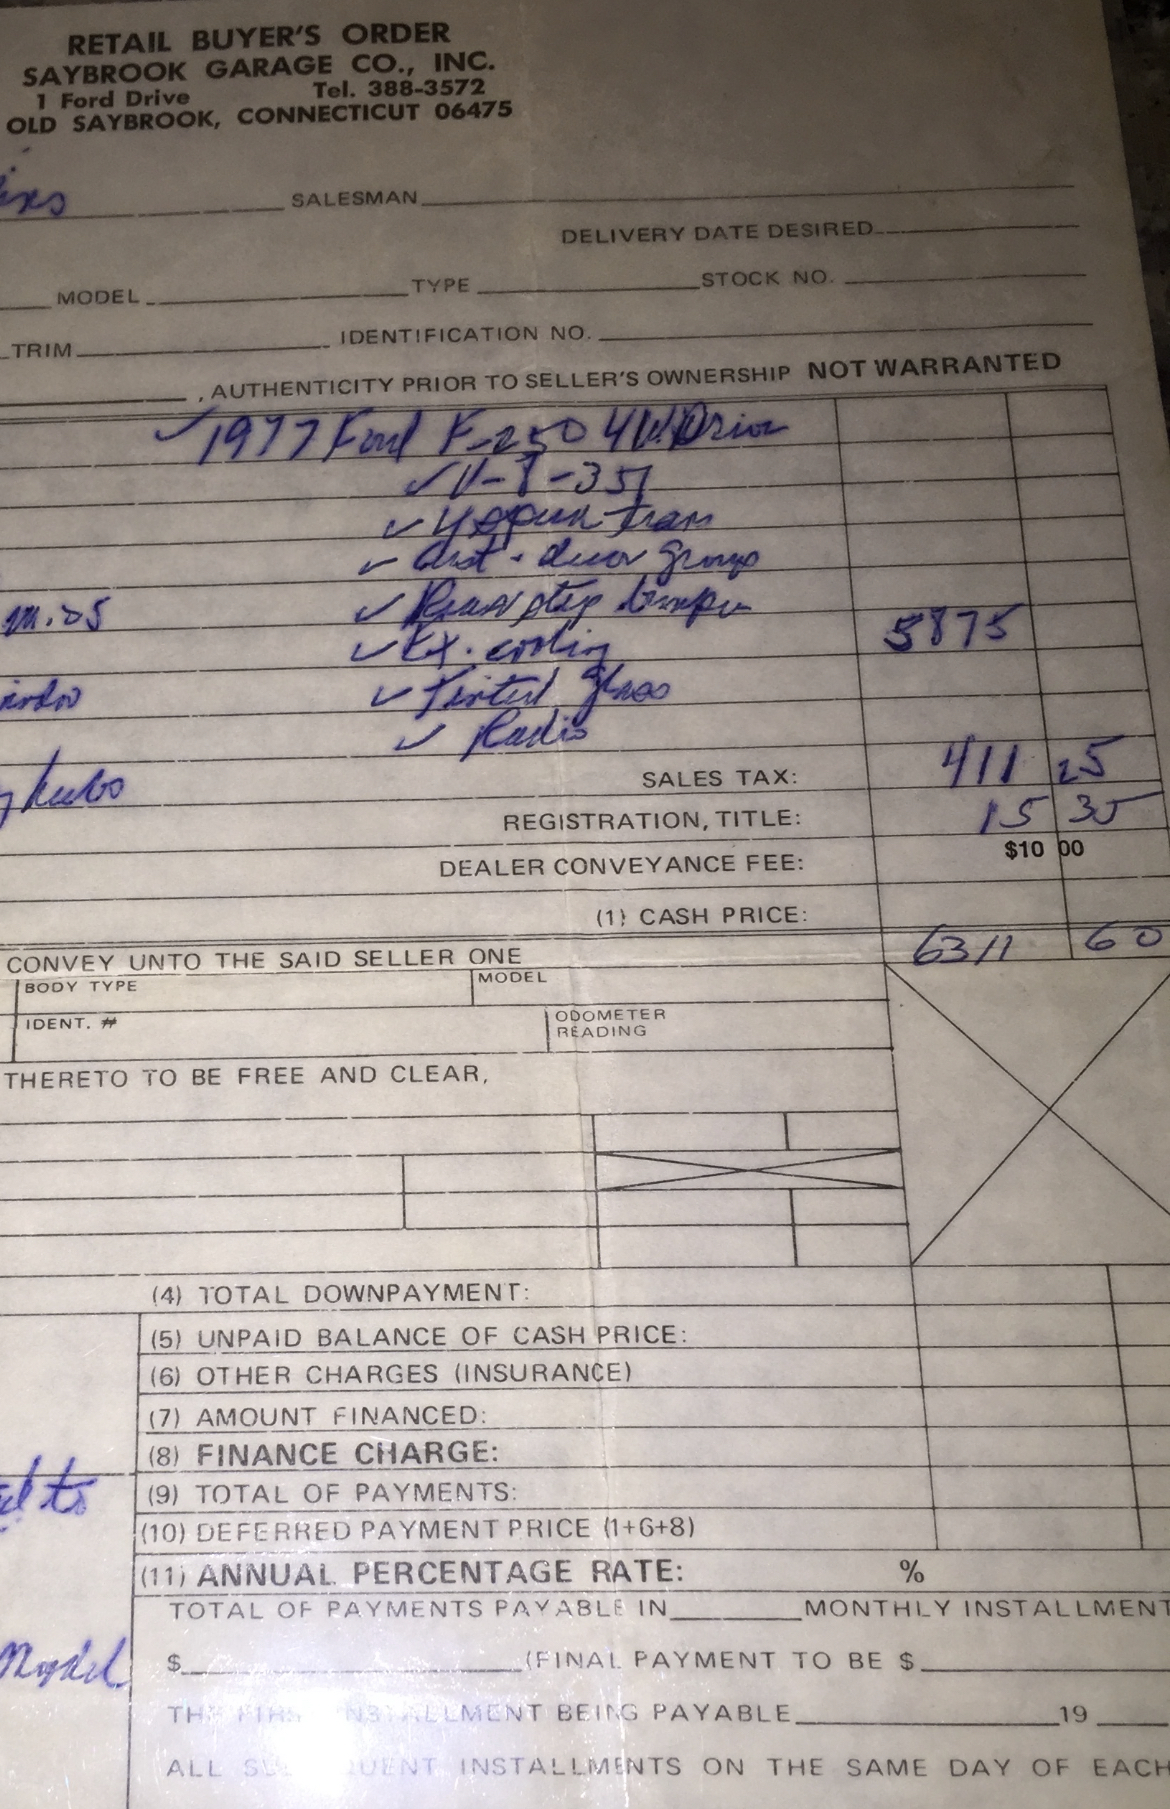 RETAIL BUYER'S ORDER
SAYBROOK GARAGE CO., INC.
1 Ford Drive Tel. 388-3572
OLD SAYBROOK, CONNECTICUT 06475
SALESMAN
DELIVERY DATE DESIRED
MODEL TYPE STOCK NO.
TRIM IDENTIFICATION NO.
, AUTHENTICITY PRIOR TO SELLER'S OWNERSHIP NOT WARRANTED
✓ 1977 Ford F-250 4W.Drive
✓ V-8-351
✓ 4 speed tran
✓ decor group
✓ Rear step bumper 5875
✓ Ex. cooling
✓ Tinted glass
✓ Radio
hubs SALES TAX: 411 25
REGISTRATION, TITLE: 15 35
DEALER CONVEYANCE FEE: $10 00
(1) CASH PRICE: 6311 60
CONVEY UNTO THE SAID SELLER ONE
BODY TYPE MODEL
IDENT. # ODOMETER READING
THERETO TO BE FREE AND CLEAR,
(4) TOTAL DOWNPAYMENT:
(5) UNPAID BALANCE OF CASH PRICE:
(6) OTHER CHARGES (INSURANCE)
(7) AMOUNT FINANCED:
(8) FINANCE CHARGE:
(9) TOTAL OF PAYMENTS:
(10) DEFERRED PAYMENT PRICE (1+6+8)
(11) ANNUAL PERCENTAGE RATE: %
TOTAL OF PAYMENTS PAYABLE IN MONTHLY INSTALLMENT
$ (FINAL PAYMENT TO BE $
THE FIRST INSTALLMENT BEING PAYABLE 19
ALL SUBSEQUENT INSTALLMENTS ON THE SAME DAY OF EACH